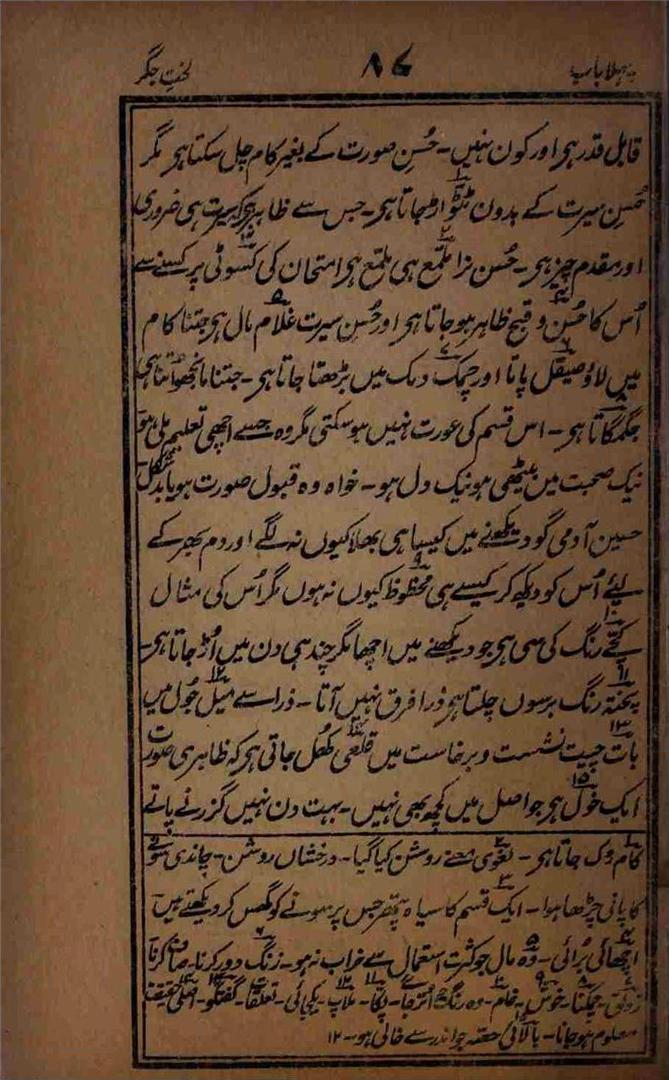 پہلا باب ۸۶ لخت جگر
قابل قدر ہی اور کون نہیں۔ حُسنِ صورت کے بغیر کام چل سکتا ہی مگر
حُسنِ سیرت کے بدون ٹٹّو اڑ جاتا ہی۔ جس سے ظاہر ہی کہ سیرت ہی ضروری
اور مقدم چیز ہی۔ حُسن نرا ملمّع ہی ملمّع ہی امتحان کی کسوٹی پر کسنے سے
اُس کا حُسن و قبح ظاہر ہو جاتا ہی اور حُسنِ سیرت غلام مال ہی جتنا کام
میں لاؤ صیقل پاتا اور چمک دمک میں بڑھتا جاتا ہی۔ جتنا مانجھو اتنا ہی
جگمگاتا ہی۔ اس قسم کی عورت نہیں ہو سکتی مگر وہ جسے اچھی تعلیم ملی ہو
نیک صحبت میں بیٹھی ہو نیک دل ہو۔ خواہ وہ قبول صورت ہو یا بدشکل
حسین آدمی گو دیکھنے میں کیسا ہی بھلا کیوں نہ لگے اور دم بھر کے
لیئے اُس کو دیکھ کر کیسے ہی محظوظ کیوں نہ ہوں مگر اُس کی مثال
کچّے رنگ کی سی ہی جو دیکھنے میں اچھا مگر چند ہی دن میں اُڑ جاتا ہی۔
پختہ رنگ برسوں چلتا ہی ذرا فرق نہیں آتا۔ ذرا سے میل جُول میں
بات چیت نشست و برخاست میں قلعی کھُل جاتی ہی کہ ظاہری صورت
ایک خول ہی جو اصل میں کچھ بھی نہیں۔ بہت دن نہیں گزرنے پاتے
۱ کام رک جاتا ہی۔ ۲ لغوی معنے روشن کیا گیا۔ درخشاں روشن۔ چاندی سونے
کا پانی چڑھا ہوا۔ ۳ ایک قسم کا سیاہ پتھر جس پر سونے کو گھس کر دیکھتے ہیں
۴ اچھائی بُرائی۔ ۵ وہ مال جو کثرت استعمال سے خراب نہ ہو۔ ۶ زنگ دور کرنا۔ صاف کرنا
۷ رونق۔ ۸ چمکنا۔ ۹ خوش۔ ۱۰ خام۔ وہ رنگ جو اُتر جائے۔ ۱۱ پکّا۔ ۱۲ ملاپ۔ یکجائی۔ تعلقات۔ ۱۳ گفتگو۔ ۱۴ اصلی حقیقت
معلوم ہو جانا۔ ۱۵ بالائی حصّہ جو اندر سے خالی ہو۔ ۱۲